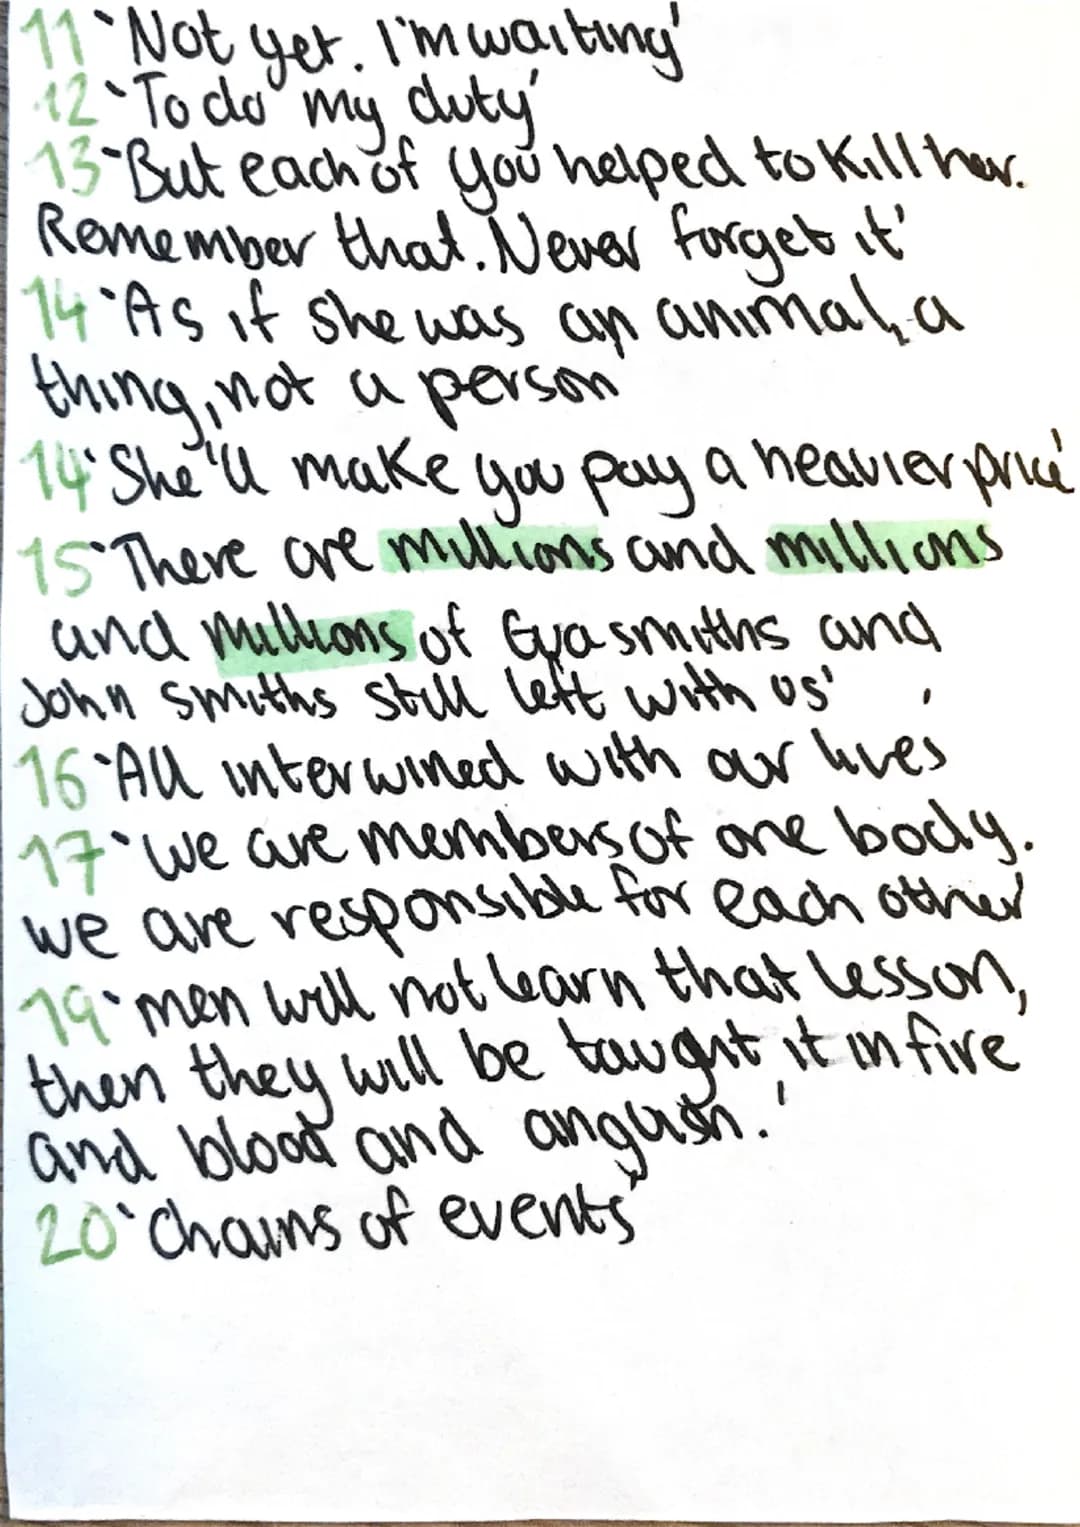 11 'Not yet. I'm waiting'
12 'To do my duty'
13 'But each of you helped to kill her.
Remember that. Never forget it'
14 'As if she was an animal, a
thing, not a person'
14 'She'll make you pay a heavier price'
15 'There are millions and millions
and millions of Eva smiths and
John smiths still left with us'
16 'All interwined with our lives'
17 'we are members of one body.
we are responsible for each other'
19 'men will not learn that lesson,
then they will be taught it in fire
and blood and anguish.'
20 'Chains of events'